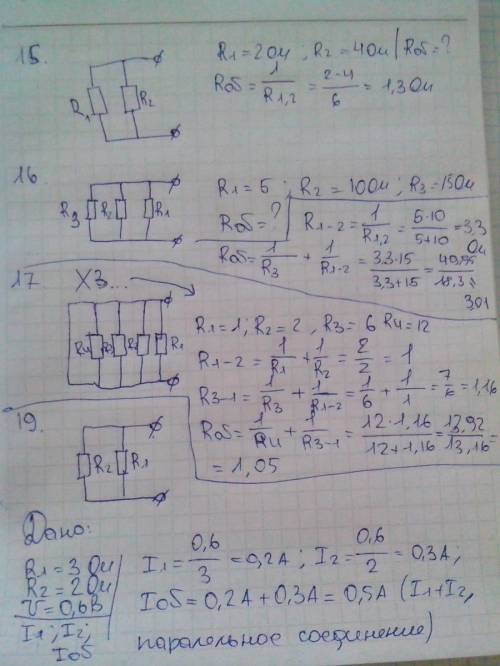 15.
R1=2Ом ; R2=4Ом / Rоб=?
Rоб = 1/R1,2 = 2·4/6 = 1,3Ом
R1 R2
16
R1=5 ; R2=10Ом ; R3=15Ом
Rоб=?
R1-2 = 1/R1,2 = 5·10/5+10 = 3,3 Ом
Rоб = 1/R3 + 1/R1-2 = 3,3·15/3,3+15 =
3,01
R3 R2 R1
17 ХЗ...
R1=1 ; R2=2 , R3=6 R4=12
R1-2 = 1/R1 + 1/R2 = 2/2 = 1
R3-1 = 1/R3 + 1/R1-2 = 1/6 + 1/1 = 7/6 = 1,16
Rоб = 1/R4 + 1/R3-1 = 12·1,16/12+1,16 = 13,92/13,16 =
= 1,05
R4 R3 R2 R1
19.
R2 R1
Дано:
R1=3Ом
R2=2Ом
U=0,6В
I1 ; I2;
Iоб
I1 = 0,6/3 = 0,2А ; I2 = 0,6/2 = 0,3А;
Iоб = 0,2А+0,3А = 0,5А (I1+I2,
паралельное соединение)